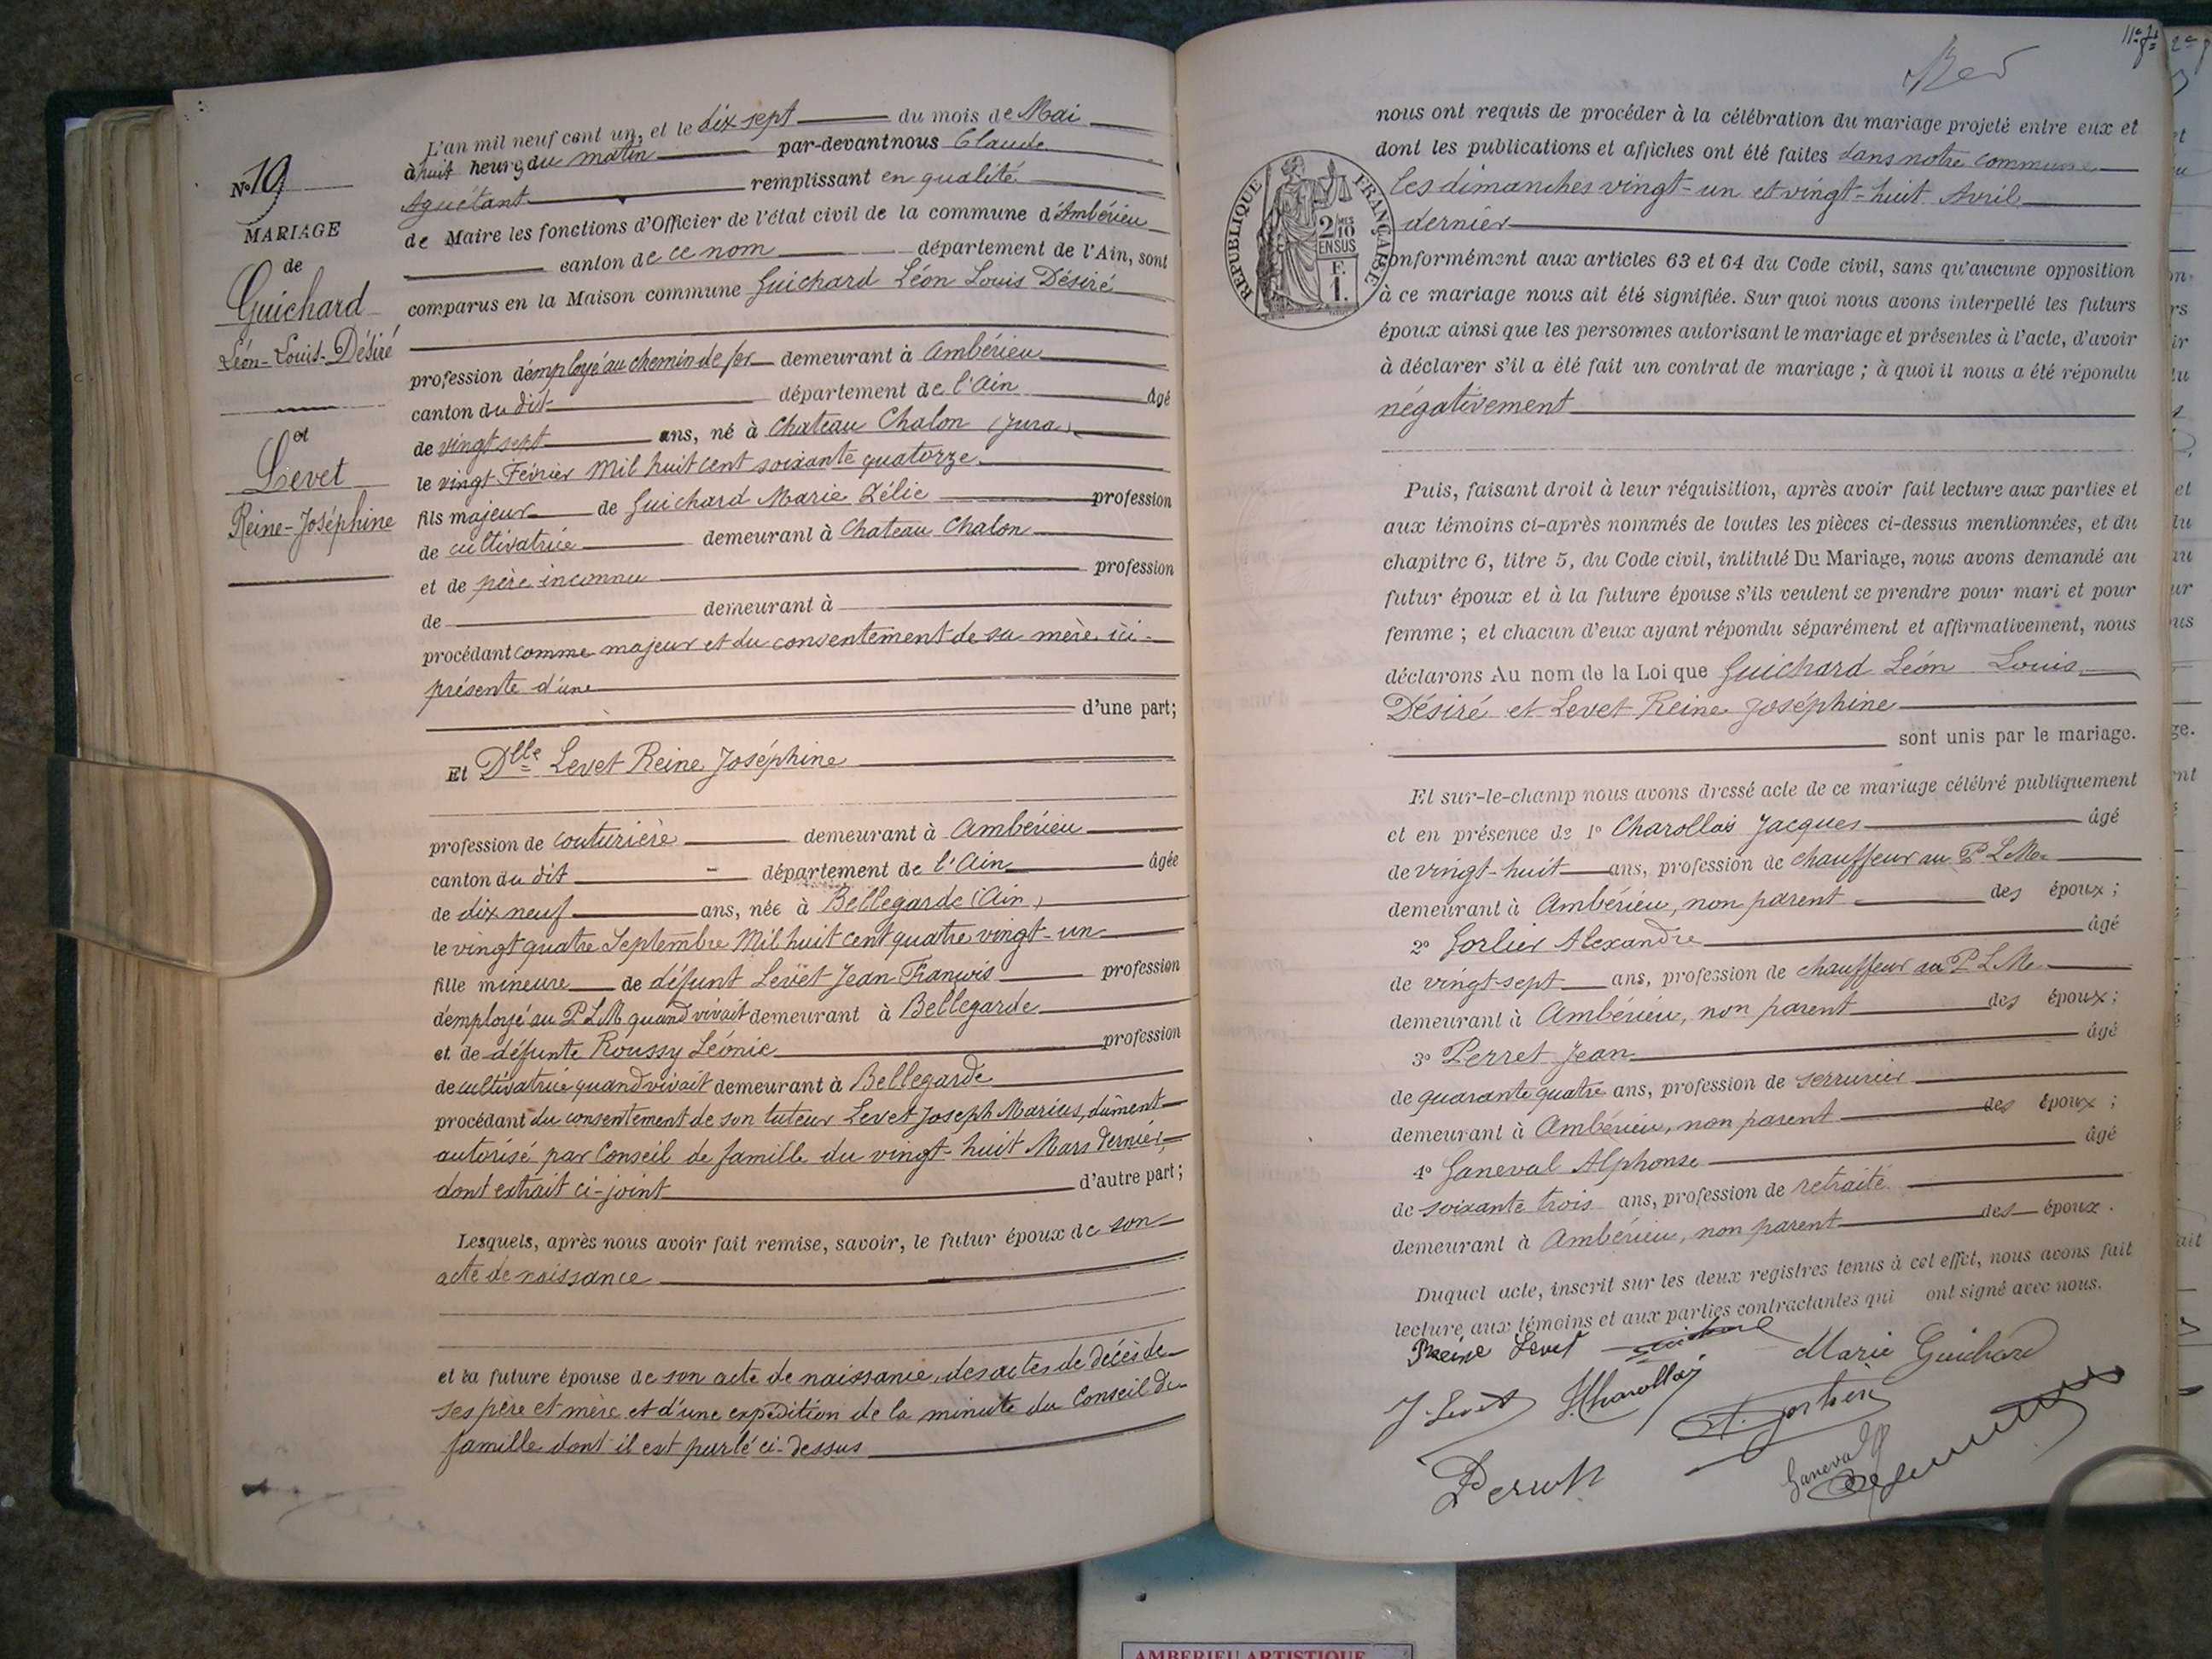 N° 19
MARIAGE
de
Guichard
Léon-Louis-Désiré
et
Levet
Reine-Joséphine
L'an mil neuf cent un, et le dix sept du mois de Mai
à huit heures du matin par-devant nous Claude
Aguétant remplissant en qualité
de Maire les fonctions d'Officier de l'état civil de la commune d'Ambérieu
canton de ce nom département de l'Ain, sont
comparus en la Maison commune Guichard Léon Louis Désiré
profession d'employé au chemin de fer demeurant à Ambérieu
canton du dit département de l'Ain âgé
de vingt sept ans, né à Chateau Chalon (Jura)
le vingt Février Mil huit cent soixante quatorze
fils majeur de Guichard Marie Zélie profession
de cultivatrice demeurant à Chateau Chalon
et de père inconnu profession
de demeurant à
procédant comme majeur et du consentement de sa mère ici-
présente d'une
d'une part;
Et Dlle Levet Reine Joséphine
profession de couturière demeurant à Ambérieu
canton du dit département de l'Ain âgée
de dix neuf ans, née à Bellegarde (Ain)
le vingt quatre Septembre Mil huit cent quatre vingt-un
fille mineure de défunt Levet Jean François profession
d'employé au PLM quand vivait demeurant à Bellegarde
et de défunte Roussy Léonie profession
de cultivatrice quand vivait demeurant à Bellegarde
procédant du consentement de son tuteur Levet Joseph Marius, dûment
autorisé par Conseil de famille du vingt-huit Mars dernier,
dont extrait ci-joint d'autre part;
Lesquels, après nous avoir fait remise, savoir, le futur époux de son
acte de naissance
et la future épouse de son acte de naissance, des actes de décès de
ses père et mère et d'une expédition de la minute du Conseil de
famille dont il est parlé ci-dessus
11e ft
nous ont requis de procéder à la célébration du mariage projeté entre eux et
dont les publications et affiches ont été faites dans notre commune
les dimanches vingt-un et vingt-huit Avril
dernier
RÉPUBLIQUE FRANÇAISE
2/10 MES
EN SUS
F.
1.
conformément aux articles 63 et 64 du Code civil, sans qu'aucune opposition
à ce mariage nous ait été signifiée. Sur quoi nous avons interpellé les futurs
époux ainsi que les personnes autorisant le mariage et présentes à l'acte, d'avoir
à déclarer s'il a été fait un contrat de mariage ; à quoi il nous a été répondu
négativement
Puis, faisant droit à leur réquisition, après avoir fait lecture aux parties et
aux témoins ci-après nommés de toutes les pièces ci-dessus mentionnées, et du
chapitre 6, titre 5, du Code civil, intitulé Du Mariage, nous avons demandé au
futur époux et à la future épouse s'ils veulent se prendre pour mari et pour
femme ; et chacun d'eux ayant répondu séparément et affirmativement, nous
déclarons Au nom de la Loi que Guichard Léon Louis
Désiré et Levet Reine Joséphine
sont unis par le mariage.
Et sur-le-champ nous avons dressé acte de ce mariage célébré publiquement
et en présence de 1° Charollais Jacques âgé
de vingt-huit ans, profession de chauffeur au PLM
demeurant à Ambérieu, non parent des époux ;
2° Gorlier Alexandre âgé
de vingt-sept ans, profession de chauffeur au PLM
demeurant à Ambérieu, non parent des époux ;
3° Perret Jean âgé
de quarante quatre ans, profession de serrurier
demeurant à Ambérieu, non parent des époux ;
4° Ganeval Alphonse âgé
de soixante trois ans, profession de retraité
demeurant à Ambérieu, non parent des époux.
Duquel acte, inscrit sur les deux registres tenus à cet effet, nous avons fait
lecture aux témoins et aux parties contractantes qui ont signé avec nous.
Reine Levet Guichard Marie Guichard
J. Levet J. Charollais A. Gorlier
Perret Ganeval
AMBERIEU ARTISTIQUE